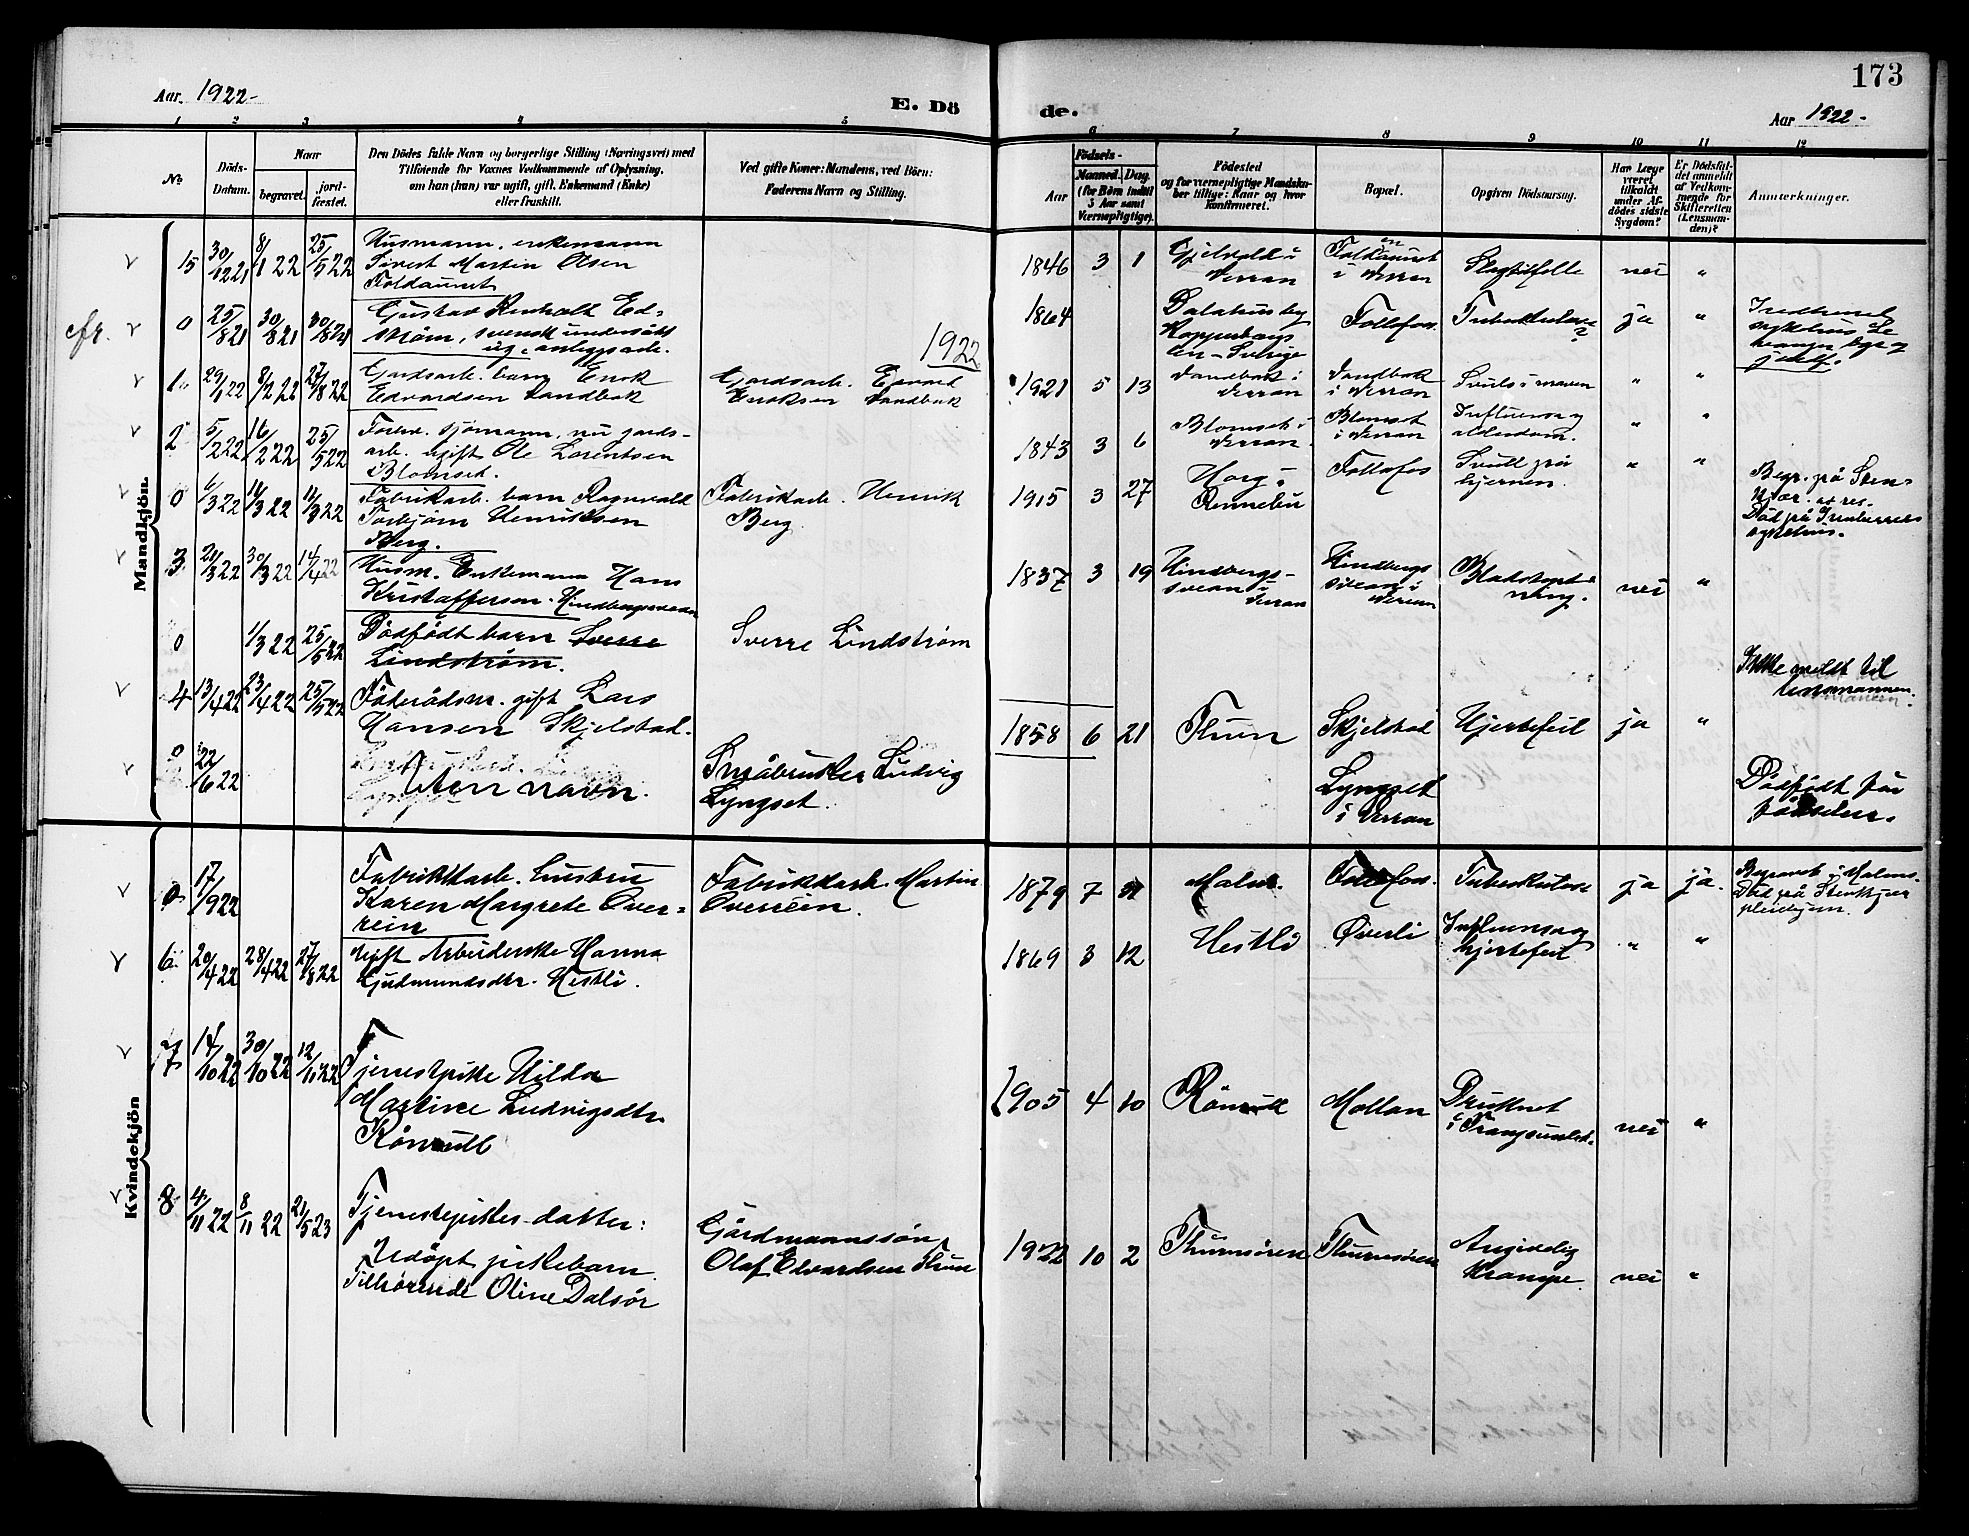 173
Aar. 1922-
E. Dö
de.
Aar 1922-
1 2 3 4 5
6 7 8 9 10 11 12
No
Döds-
Datum.
Naar
begravet.
jord-
fæstet.
Den Dödes fulde Navn og borgerlige Stilling (Næringsvei) med
Tilföiende for Voxnes Vedkommende af Oplysning,
om han (hun) var ugift, gift, Enkemand (Enke)
eller fraskilt.
Ved gifte Koner: Mandens, ved Börn:
Faderens Navn og Stilling.
Födsels-
Aar
Maaned. Dag.
(for Börn indtil
5 Aar samt
Værnepligtige).
Födested
og for værnepligtige Mandska-
ber tillige: Naar og hvor
konfirmeret.
Bopæl.
Opgiven Dödsaarsag.
Har Læge
været
tilkaldt
under Af-
dödes sidste
Sygdom?
Er Dödsfal-
det anmeldt
af Vedkom-
mende for
Skifteretten
(Lensman-
den)?
Anmerkninger.
Mandkjön.
15 30/12 21 8/1 22 25/5 22 Husmann, enkemann
Sivert Martin Olsen
Foldaunet
1846 3 1 Gjelvold i
Verran
Foldaunet
i Verran
Slagtilfelle nei "
0 25/8 21 30/8 21 30/8 21 Gustav Renholt Ed-
strøm, svensk undersått
ug. anleggsarb.
1922
1864
Kopparbergs
len - Sverige
Follafos. Tuberkulose? ja "
1. 29/1 22 8/2 22 27/8 22 Gårdsarb. barn Erik
Edvardsen Sandbak
Gårdsarb. Edvard
Eriksen Sandbak
1921 5 13 Sandbak i
Verran
Sandbak
i Verran
Svuls i maven " "
2 5/2 22 16/2 22 25/5 22 Forhv. sjömann, nu jords-
arb. ugift Ole Lorentsen
Blomset.
1843 3 6 Blomset i
Verran
Blomset
i Verran
Influensa og
alderdom. " "
0 6/3 22 11/3 22 11/3 22 Fabrikarb. barn Ragnvald
Torbjørn Henriksen
Berg.
Fabrikarb. Henrik
Berg.
1915 3 27 Horg i
Rennebu
Follafos Svull på
hjernen. " "
Begr. på Sten-
kjær.
Död på Innherreds
sykehus.
3 21/3 22 30/3 22 14/4 22 Husm. Enkemann Hans
Kristoffersen Hindbergsvean
1837 3 19 Hindbergs-
svean i
Verran
Hindbergs
svean i
Verran
Blodstopt-
ning. nei "
0 1/3 22 25/5 22 Dödfödt barn Sverre
Lindstrøm.
Sverre Lindstrøm
Ikke meldt til
lensmannen.
4 13/4 22 23/4 22 25/5 22 Föderådsm. gift Lars
Hansen Skjelstad.
1858 6 21 Thun Skjelstad Hjertefeil ja "
0 22/6 22 Uten navn.
Småbruker Ludvig
Lyngset.
Lyngset
i Verran
Dödfödt för
Kvindekjön
0 17/9 22 Fabrikkarb. hustru
Karen Margrete Over-
rein
Fabrikkarb. Martin
Overrein.
1879 7 Malm. Follafos. Tuberkulose ja ja.
Begravet i Malm.
Död på Stenkjær
pleiehjem.
6 20/4 22 28/4 22 27/8 22 Ugift Arbeiderske Hanna
Gudmundsdtr. Hestli.
1869 3 12 Hestli Øverli Influensa og
hjertefeil " "
7 14/10 22 30/10 22 12/11 22 Tjenestpike Hilda
Martine Ludvigsdtr.
1905 4 10 Mollan Druknet
nei "
8 4/11 22 8/11 22 21/5 23 Tjenestepikes datter:
Udöpt pikebarn
Tilhörende Oline Dalsör
Gårdmannssön
Olaf Edvardsen Thun
1922 10 2 Thunsören Thunsören Angivelig
Krampe. nei "